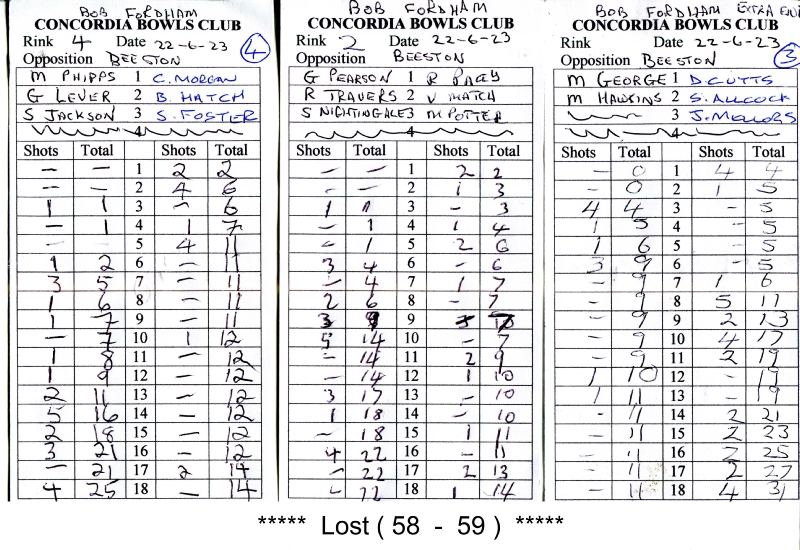 BOB FORDHAM
CONCORDIA BOWLS CLUB
Rink 4 Date 22-6-23 4
Opposition BEESTON
M PHIPPS 1 C. MORGAN
G LEVER 2 B. HATCH
S JACKSON 3 S. FOSTER
4
Shots Total Shots Total
– – 1 2 2
– – 2 4 6
1 1 3 – 6
– 1 4 1 7
– – 5 4 11
1 2 6 – 11
3 5 7 – 11
1 6 8 – 11
1 7 9 – 11
– 7 10 1 12
1 8 11 – 12
1 9 12 – 12
2 11 13 – 12
5 16 14 – 12
2 18 15 – 12
3 21 16 – 12
– 21 17 2 14
4 25 18 – 14
BOB FORDHAM
CONCORDIA BOWLS CLUB
Rink 2 Date 22-6-23
Opposition BEESTON
G PEARSON 1 R PACEY
R TRAVERS 2 V HATCH
S NIGHTINGALE 3 M POTTER
4
Shots Total Shots Total
– – 1 2 2
– – 2 1 3
1 1 3 – 3
– 1 4 1 4
– 1 5 2 6
3 4 6 – 6
– 4 7 1 7
2 6 8 – 7
3 9 9
5 14 10 – 7
– 14 11 2 9
– 14 12 1 10
3 17 13 – 10
1 18 14 – 10
– 18 15 1 11
4 22 16 – 11
– 22 17 2 13
– 22 18 1 14
BOB FORDHAM EXTRA END
CONCORDIA BOWLS CLUB
Rink Date 22-6-23
Opposition BEESTON 3
M GEORGE 1 D CUTTS
M HAWKINS 2 S. ALLCOCK
3 J. MELLORS
4
Shots Total Shots Total
– 0 1 4 4
– 0 2 1 5
4 4 3 – 5
1 5 4 – 5
1 6 5 – 5
3 9 6 – 5
– 9 7 1 6
– 9 8 5 11
– 9 9 2 13
– 9 10 4 17
– 9 11 2 19
1 10 12 – 19
1 11 13 – 19
– 11 14 2 21
– 11 15 2 23
– 11 16 2 25
– 11 17 2 27
– 11 18 4 31
***** Lost ( 58 - 59 ) *****